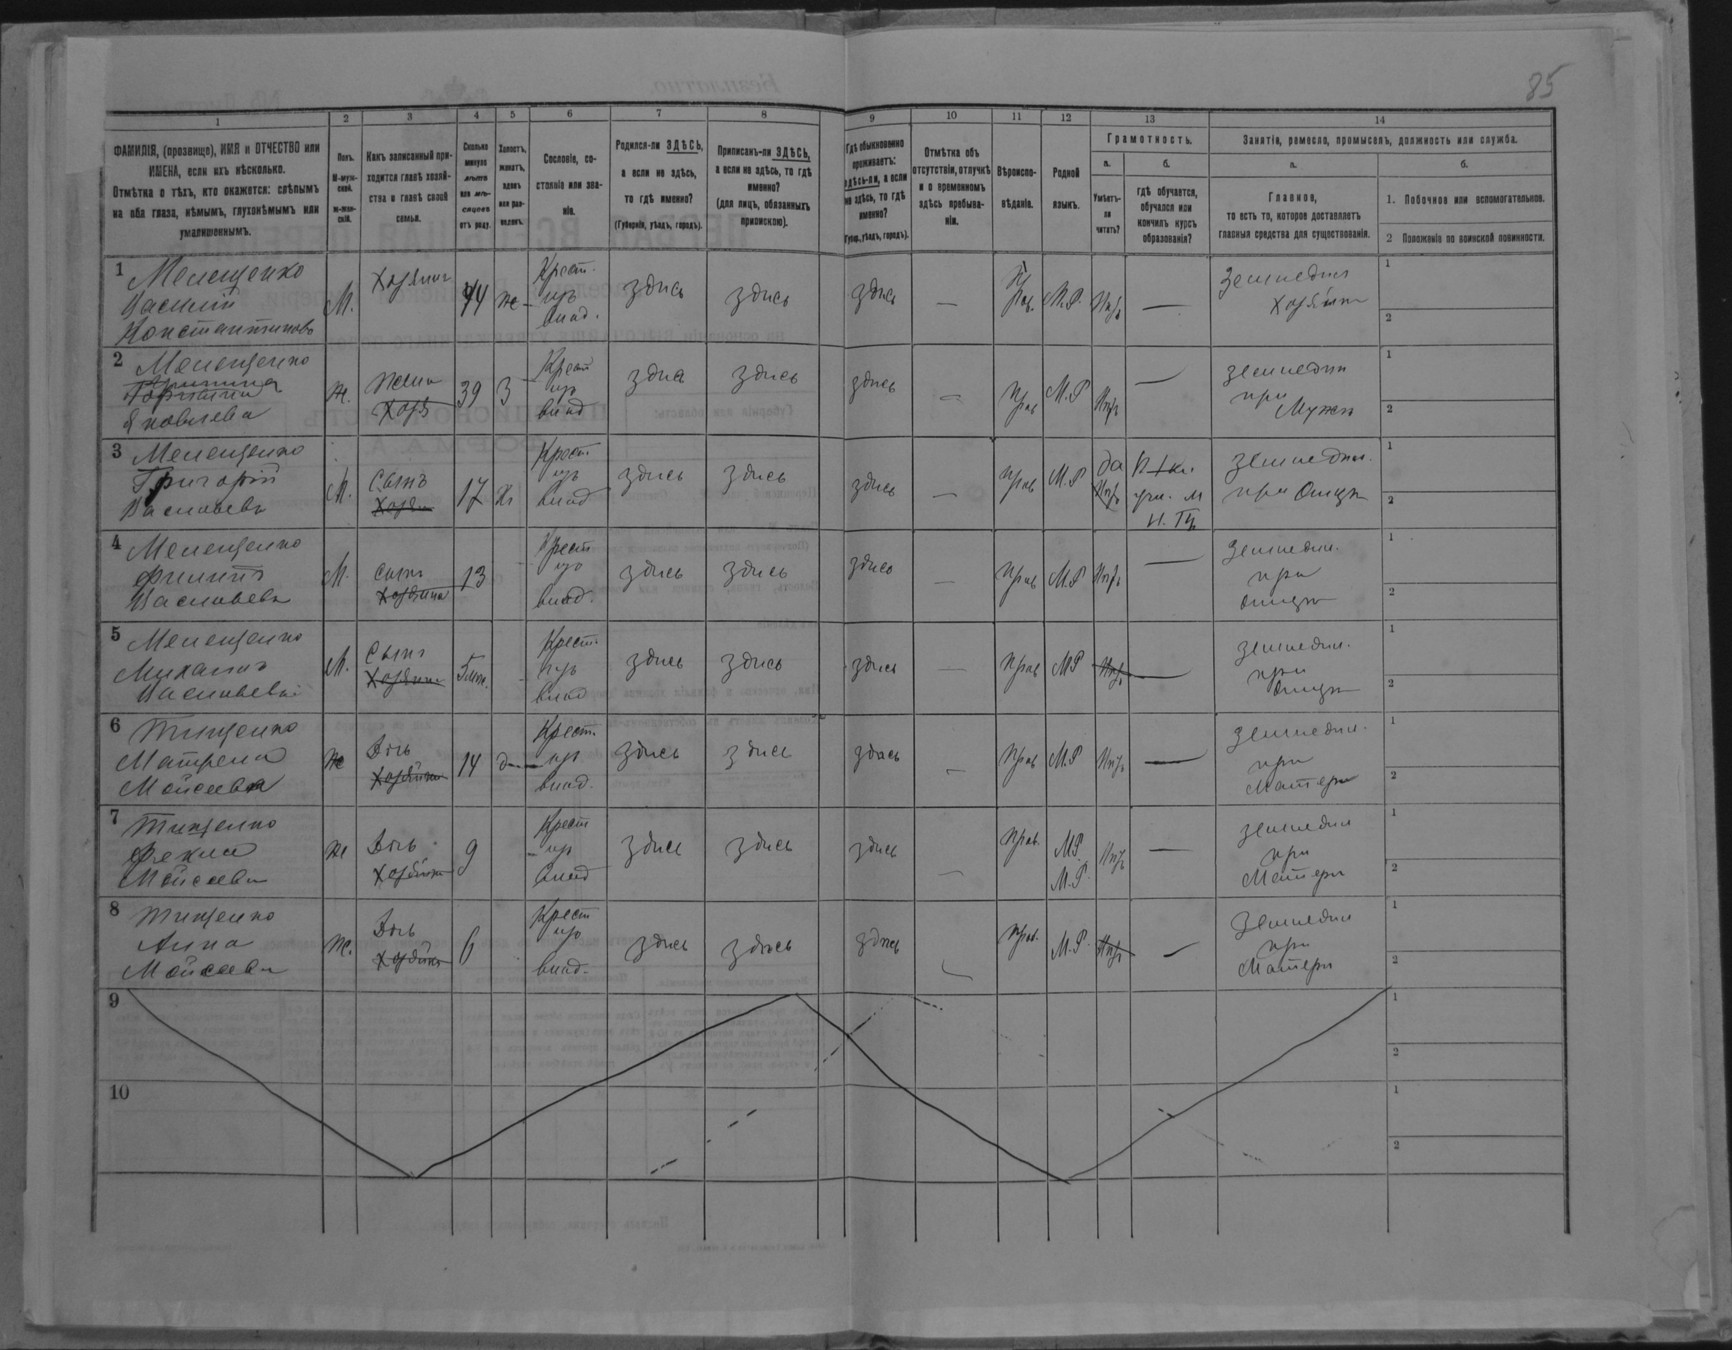 85
1
2
3
4
5
6
7
8
9
10
11
12
13
14
ФАМИЛІЯ, (прозвище), ИМЯ и ОТЧЕСТВО или
ИМЕНА, если ихъ нѣсколько.
Отмѣтка о тѣхъ, кто окажется: слѣпымъ
на оба глаза, нѣмымъ, глухонѣмымъ или
умалишеннымъ.
Полъ.
М-муж-
ской.
ж-жен-
скій.
Какъ записанный при-
ходится главѣ хозяй-
ства и главѣ своей
семьи.
Сколько
минуло
лѣтъ
или мѣ-
сяцевъ
отъ роду.
Холостъ,
женатъ,
вдовъ
или раз-
веденъ.
Сословіе, со-
стояніе или зва-
ніе.
Родился-ли ЗДѢСЬ,
а если не здѣсь,
то гдѣ именно?
(Губернія, уѣздъ, городъ).
Приписанъ-ли ЗДѢСЬ,
а если не здѣсь, то гдѣ
именно?
(для лицъ, обязанныхъ
припискою).
Гдѣ обыкновенно
проживаетъ:
здѣсь-ли, а если
не здѣсь, то гдѣ
именно?
(Губер., уѣздъ, городъ).
Отмѣтка объ
отсутствіи, отлучкѣ
и о временномъ
здѣсь пребыва-
ніи.
Вѣроиспо-
вѣданіе.
Родной
языкъ.
Грамотность.
а.
б.
Умѣетъ-
ли
читать?
гдѣ обучается,
обучался или
кончилъ курсъ
образованія?
Занятіе, ремесло, промыселъ, должность или служба.
а.
б.
Главное,
то есть то, которое доставляетъ
главныя средства для существованія.
1. Побочное или вспомогательное.
2 Положеніе по воинской повинности.
1 Мелещенко
Василій
Константиновъ
М.
Хозяинъ
44
ж
Крест.
изъ
влад.
здѣсь
здѣсь
здѣсь
—
Прав.
М.Р.
Нѣтъ
—
Земледѣл
Хозяинъ
1
2
2 Мелещенко
Яковлева
ж.
Жена
Хозя
39
З
Крест
изъ
влад
здѣсь
здѣсь
здѣсь
—
Прав
М.Р
Нѣтъ
—
Земледѣл
при
Мужѣ
1
2
3 Мелещенко
Григорій
Васильевъ
М.
Сынъ
Хозяи
17
Х
Крест.
изъ
влад
здѣсь
здѣсь
здѣсь
—
Прав
М.Р
да
Нѣтъ
учи. М
Н. П.
Земледѣл.
при Отцѣ
1
2
4 Мелещенко
Филипъ
Васильевъ
М.
Сынъ
Хозяина
13
Крест.
изъ
влад.
здѣсь
здѣсь
здѣсь
—
Прав
М.Р
Нѣтъ
—
Земледѣл.
при
Отцѣ
1
2
5 Мелещенко
Михаилъ
Васильевъ
М.
Сынъ
Хозяина
Крест.
изъ
влад
здѣсь
здѣсь
здѣсь
—
Прав
МР
Нѣтъ
—
Земледѣл.
при
Отцѣ
1
2
6 Тищенко
Матрена
Мойсеева
ж
Дочь
Хозяина
14
д
Крест.
изъ
влад.
здѣсь
здѣсь
здѣсь
—
Прав
М.Р
Нѣтъ
—
Земледѣл.
при
Матери
1
2
7 Тищенко
Фекла
Мойсеева
ж
Дочь
Хозяина
9
Крест
изъ
влад
здѣсь
здѣсь
здѣсь
—
Прав.
МР.
М.Р.
Нѣтъ
—
Земледѣл
при
Матери
1
2
8 Тищенко
Анна
Мойсеева
ж.
Дочь
Хозяина
6
Крест
изъ
влад.
здѣсь
здѣсь
здѣсь
Прав.
М.Р.
Нѣтъ
—
Земледѣл
при
Матери
1
2
9
1
2
10
1
2